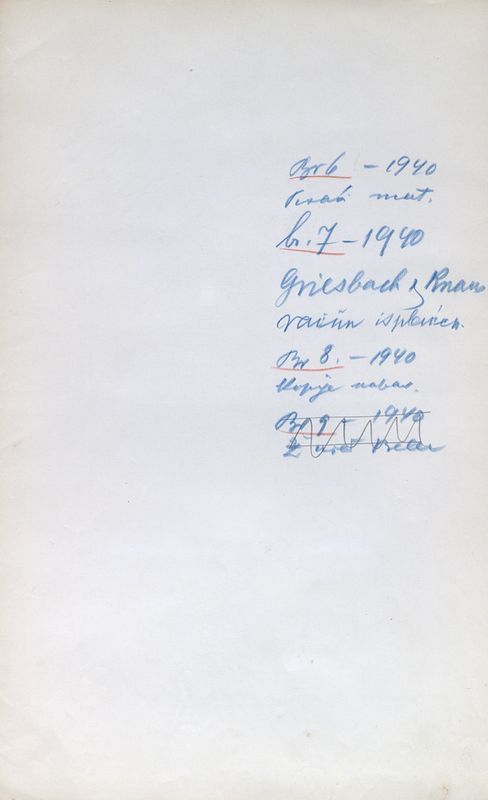 Br 6 - 1940
mat.
br. 7 - 1940
Griesbach & Knaus
račun isplaćen.
Br 8. - 1940
Kopije nabav.
Br 9 - 1940